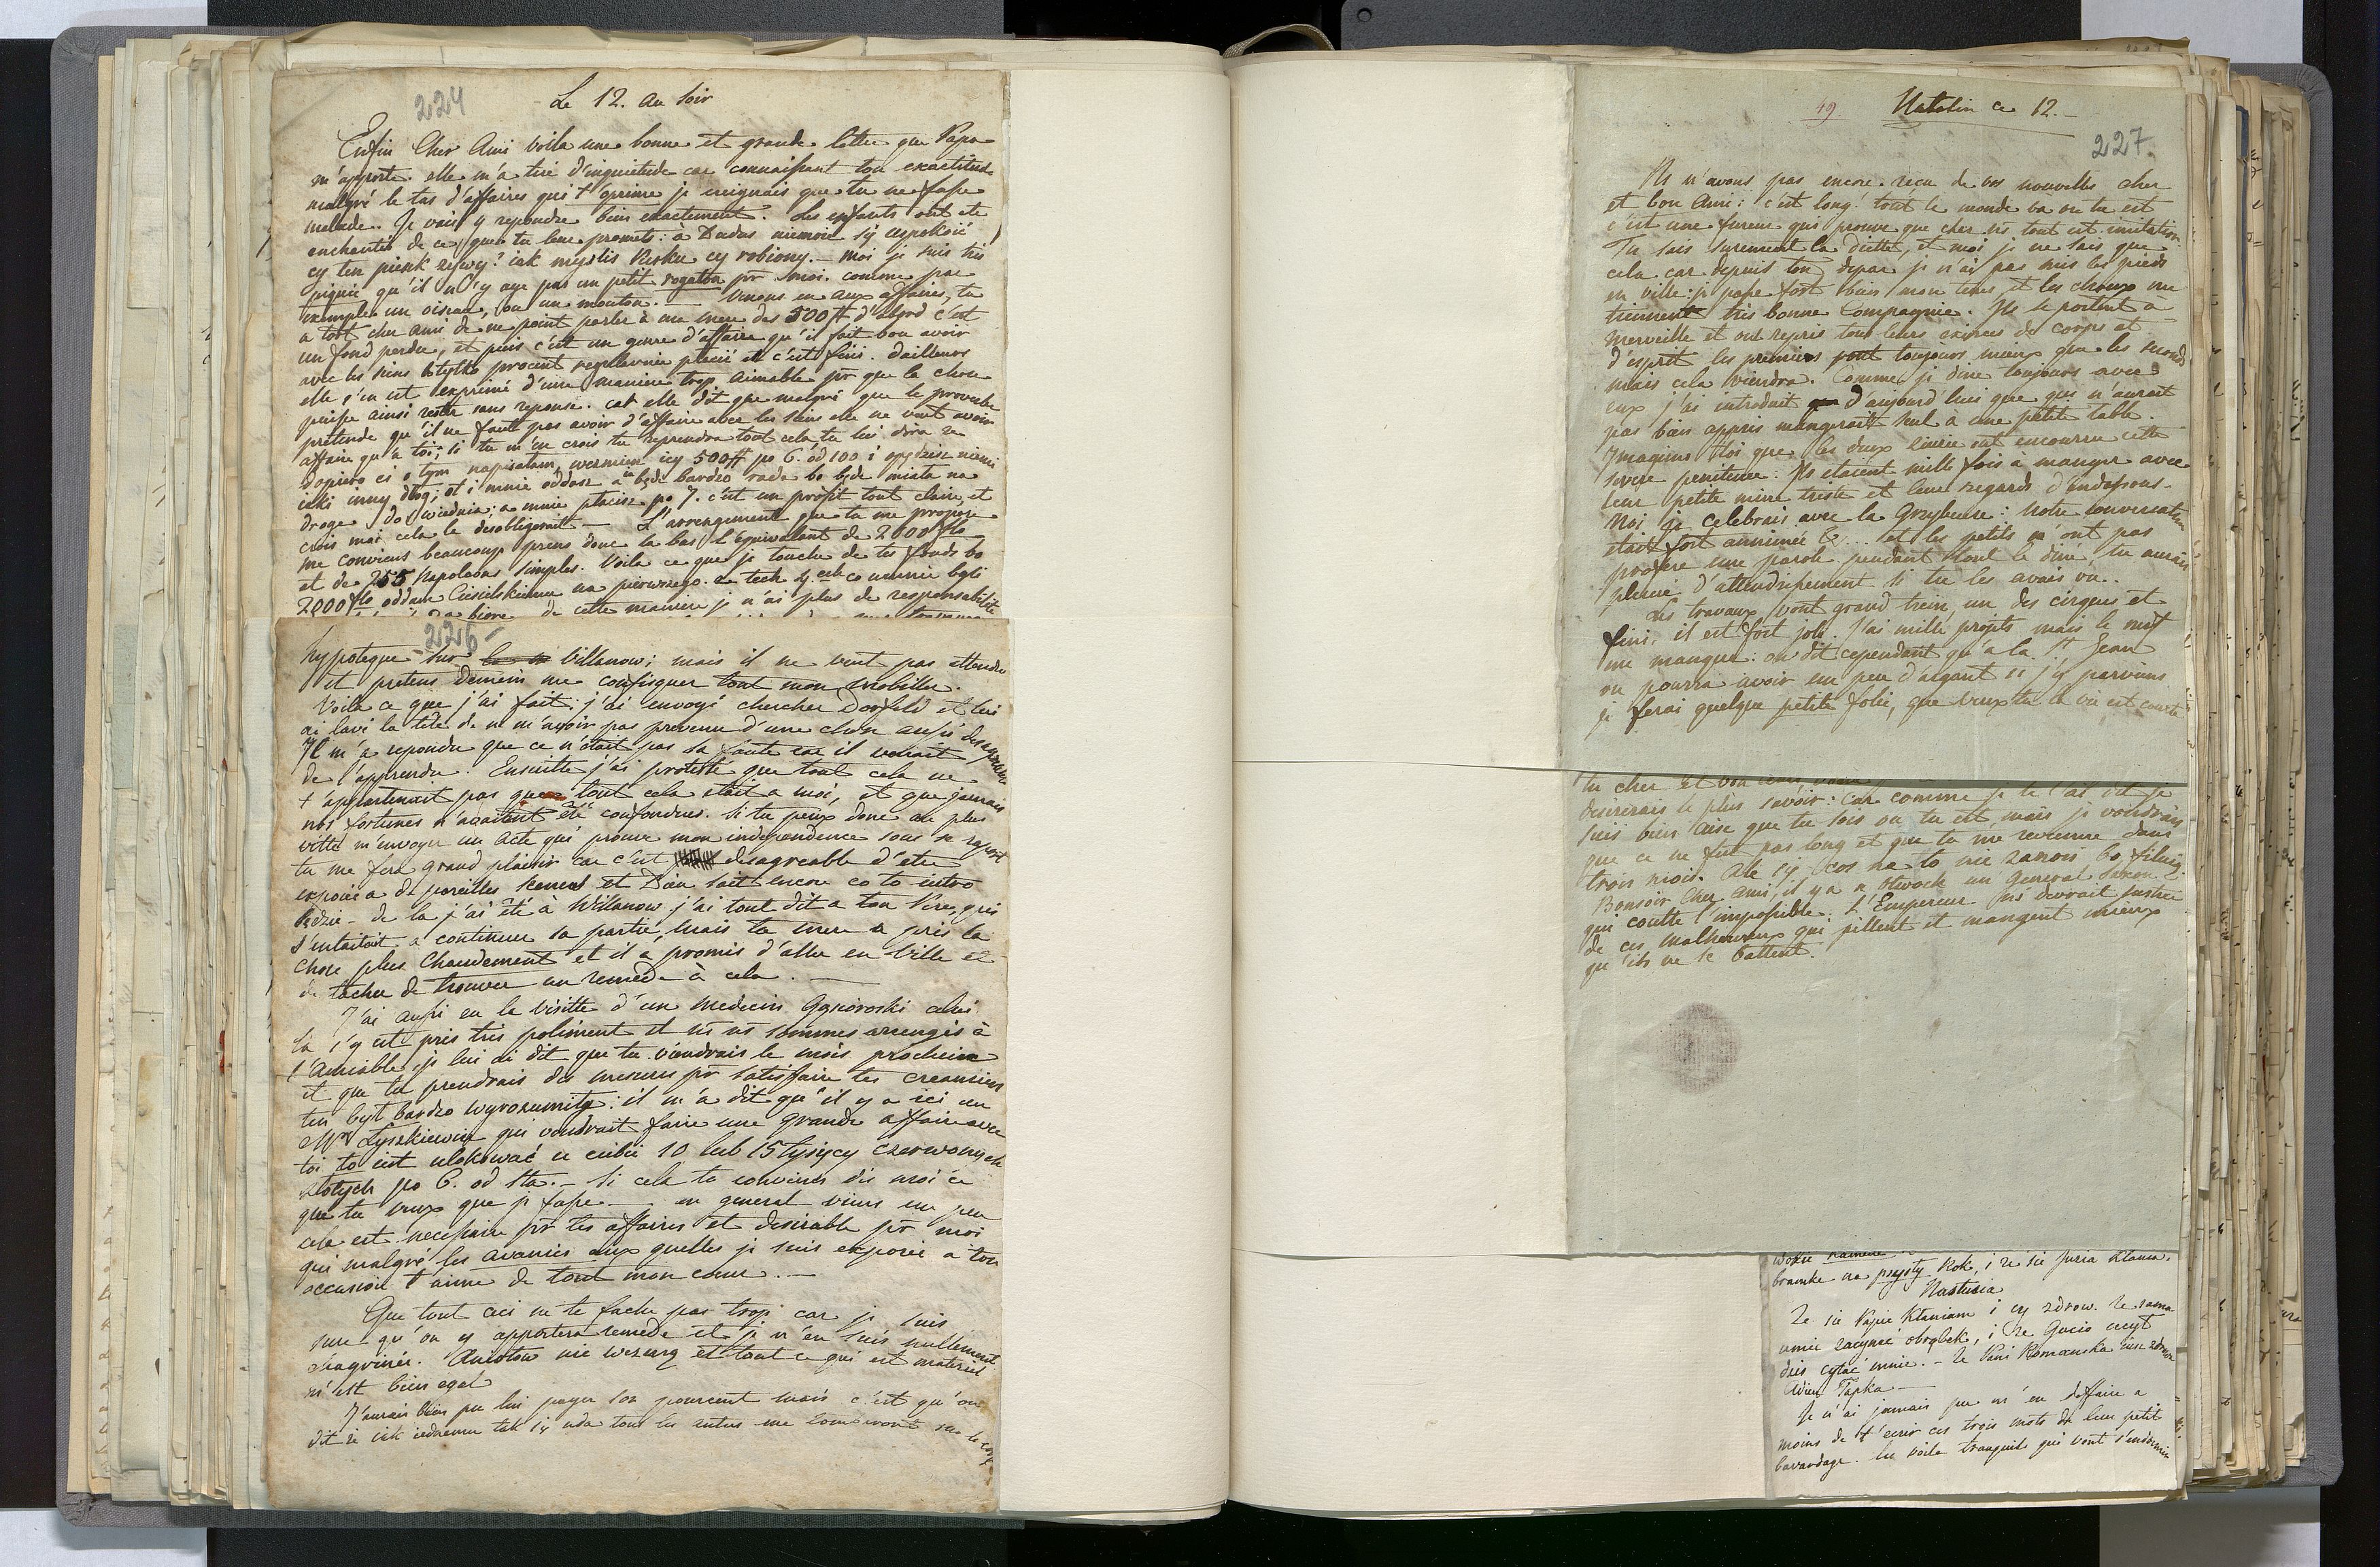 224
Le 12. au soir
Enfin Cher Ami voila une bonne et grande lettre que Papa
m'apporte. elle m'a tiré d'inquietude car connaissant ton exactitude
malgré le tas d'affaires qui t'oprime je creignais que tu ne fasse
malade. Je vais y repondre bien exactement. Les enfants ont ete
enchantés de ce que tu leur promets: à Dudas niemoze sie uspokoić
cy ten piesek zeswy? iak myslis Kosku cy robiony. — moi je suis très
piquée qu'il n'y aye pas un petit rogaton pr moi. comme par
exemple un oiseau, ou un mouton. — Venons en aux affaires, tu
a tort cher ami de ne point parler à ma mere des 500 # d'abord c'est
un fond perdu, et puis c'est un genre d'affaire qu'il fait bon avoir
avec les siens bo tylko procent regularnie placić et c'est fini. d'ailleurs
elle s'en est exprimé d'une maniere trop aimable pr que la chose
puisse ainsi rester sans reponse. car elle dit que malgré que le proverbe
pretende qu'il ne faut pas avoir d'affaire avec les siens elle ne veut avoir
affaire qu'à toi; si tu m'en crois tu reprendra tout cela, tu lui dira ze
dopiero ci o tym napisałam, wezmiesz iey 500 # po 6. od 100 i opędzisz niemi
iaki inny dług; et i mnie oddasz a będe bardzo rada bo będe miała na
droge do Wiednia; a mnie placisz po 7. c'est un profit tout claire, et
crois moi cela le desobligerait — L'arrengement que tu me propose
me conviens beaucoup prens donc la bas l'équivalent de 2000 flo
et de 255 Napoleons simples. Voila ce que je touche de tes fonds bo
2000 flo oddam Ciesielskiemu na pierwszego. z tech
de cette maniere je n'ai plus de responsabilité
226
hypoteque sur Villanow; mais il ne veut pas attendre
et pretens demain me confisquer tout mon mobilier.
Voila ce que j'ai fait: j'ai envoyé chercher Dorfeld et lui
ai lavé la tête de ne m'avoir pas prevenu d'une chose aussi desagreable
Il m'a repondu que ce n'étoit pas sa faute car il venait
de l'apprendre. Ensuitte j'ai protesté que tout cela ne
t'appartenait pas que tout cela était a moi, et que jamais
nos fortunes n'avaitent été confondues. Si tu peux donc au plus
vitte m'envoyer un acte qui prouve mon independence sous ce raport
tu me fera grand plaisir car c'est desagreable d'etre
exposée a de pareilles scenes et Dieu sait encore co to iutro
będzie — de la j'ai été à Willanow j'ai tout dit a ton Pere, qui
s'entaitait a continuer sa partie, mais ta mere a pris la
chose plus chaudement et il a promis d'aller en ville et
de tacher de trouver un remede à cela. —
J'ai aussi eu la visitte d'un medecin Gąsiorowski celui
la s'y est pris très poliment et ns ns sommes arrengés à
l'amiable, je lui ai dit que tu viendrais le mois prochein
et que tu prendrais des mesures pr satisfaire tes creanciers
ten był bardzo wyrozumiły: il m'a dit qu'il y a ici un
Mr Łyszkiewicz qui voudrait faire une grande affaire avec
toi to iest ulokować u ciebie 10 lub 15 tysięcy czerwonych
złotych po 6. od sta. — Si cela te convient dis moi ce
que tu veux que je fasse. — en general viens un peu
cela est necessaire pr tes affaires et desirable pr moi
qui malgré les avanies aux quelles je suis exposée a ton
occasion t'aime de tout mon cœur. —
Que tout ceci ne te fache pas trop car je suis
sure qu'on y apportera remede et je n'en suis nullement
chagrinée. Aniołow nie wezmą et tout ce qui est materiel
m'est bien egal
J'aurais bien pu lui payer son pourcent mais c'est qu'on
dit ze iak iednemu tak się uda tous les autres me tomberont sur le corps
19. Natolin ce 12. —
227
Ns n'avons pas encore reçu de vos nouvelles cher
et bon Ami: c'est long. tout le monde va ou tu est
c'est une fureur qui prouve que chez ns tout est imitation
Tu sais surement la diette, et moi je ne sais que
cela car depuis ton depar je n'ai pas mis les pieds
en ville: je passe fort bien mon tems et les choux me
tiennent très bonne Compagnie. Ils se portent à
merveille et ont repris tous leurs exercices de corps et
d'esprit les premiers vont toujours mieux que les seconds
mais cela viendra. Comme je dine toujours avec
eux j'ai introduit d'aujourd'hui que qui n'aurait
pas bien appris mangerait seul à une petite table.
Imagines toi que les deux ont encourru cette
severe penitence: Ils etaient mille fois à manger avec
leur petite mine triste et leur regards d'endessous.
Moi je celebrais avec la Grzybuese: notre conversation
était fort animée &... et les petits n'ont pas
profere une parole pendant tout le diné, tu aurais
pleuré d'attendrissement si tu les avais vu.
Les travaux vont grand trein, un des cirques et
fini, il est fort joli. J'ai mille projets mais le nerf
me manque: on dit cependant qu'a la St Jean
on pourra avoir un peu d'argant si j'y parviens
je ferai quelque petite folie, que veux tu la vie est courte
tu cher et bon ami
desirerais le plus savoir: car comme je te l'ai dit je
suis bien aise que tu sois ou tu est, mais je voudrais
que ce ne fut pas long et que tu me revienne dans
trois mois. Ale się cos na to nie zanosi,
Bonsoir Cher Ami, il y a a Otwock un General Saxon
qui coutte l'impossible. L'Empereur ns devrait justice
de ces malheureux qui pillent et mangent mieux
qu'ils ne se battent.
bramke na przysły Rok, i ze sie Juzia kłania.
Nastusia
Ze sie Papie kłaniam i cy zdrow. Ze sama
umie zacynać obrąbek, i ze Gucio uczył
dzis cytać mnie. — Ze Pani Romanska iusz zdrowa
Adieu Papka —
Je n'ai jamais pu m'en deffaire a
moins de t'ecrir ces trois mots de leur petit
bavardage. les voila tranquils qui vont s'endormir